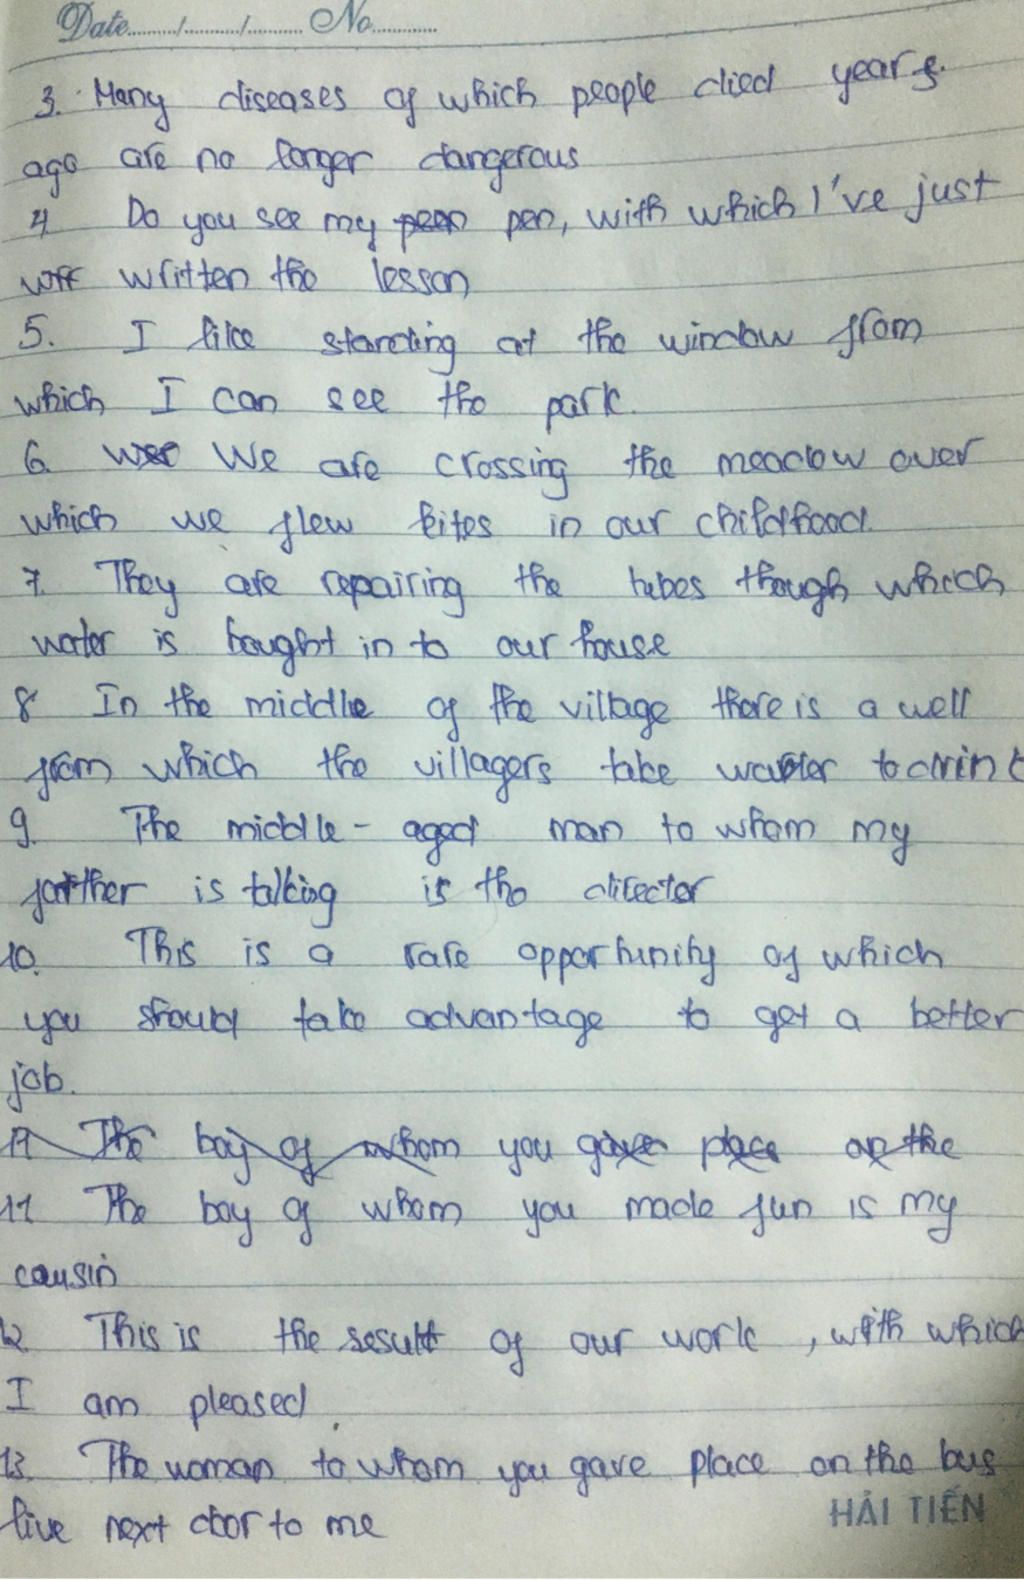 Date........./........../.......... No............
3. Many diseases of which people died years
ago are no longer dangerous
4 Do you see my pen, with which I've just
written the lesson
5. I like standing at the window from
which I can see the park.
6. We are crossing the meadow over
which we flew kites in our childhood.
7. They are repairing the tubes though which
water is bought in to our house
8 In the middle of the village there is a well
from which the villagers take water to drink
9. The middle - aged man to whom my
farther is talking is the director
10. This is a rare opportunity of which
you should take advantage to get a better
job.
11 The boy of whom you gave place on the
11 The boy of whom you made fun is my
cousin
12. This is the result of our work, with which
I am pleased.
13. The woman to whom you gave place on the bus
live next door to me
HẢI TIẾN